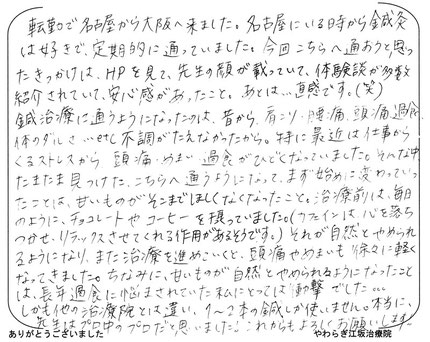 転勤で名古屋から大阪へ来ました。名古屋にいる時から鍼灸
は好きで、定期的に通っていました。今回こちらへ通おうと思っ
たきっかけは、HPを見て、先生の顔が載っていて、体験談が多数
紹介されていて、安心感があったこと。あとは…直感です。(笑)
鍼治療に通うようになったのは、昔から、肩こり・腰痛、頭痛、過食、
体のダルさ…etc 不調がたえなかったから。特に最近は仕事から
くるストレスから 頭痛・めまい・過食がひどくなっていました。そんな中
たまたま見つけた、こちらへ通うようになって、まず始めに変わってい
ったことは、甘いものがそこまでほしくなくなったこと。治療前は、毎日
のように、チョコレートやコーヒーを摂っていました。(カフェインは、心を落ち
つかせ、リラックスさせてくれる作用があるそうです。)それが自然とやめられ
るようになり、また治療を進めていくと、頭痛やめまいも徐々に軽く
なってきました。ちなみに、甘いものが自然とやめられるようになったこと
は、長年過食に悩まされていた私にとっては衝撃でした…
しかも他の治療院とは違い、1〜2本の鍼しか使いません。本当に、
先生はプロ中のプロだと思いました。これからもよろしくお願いします。
ありがとうございました やわらぎ江坂治療院